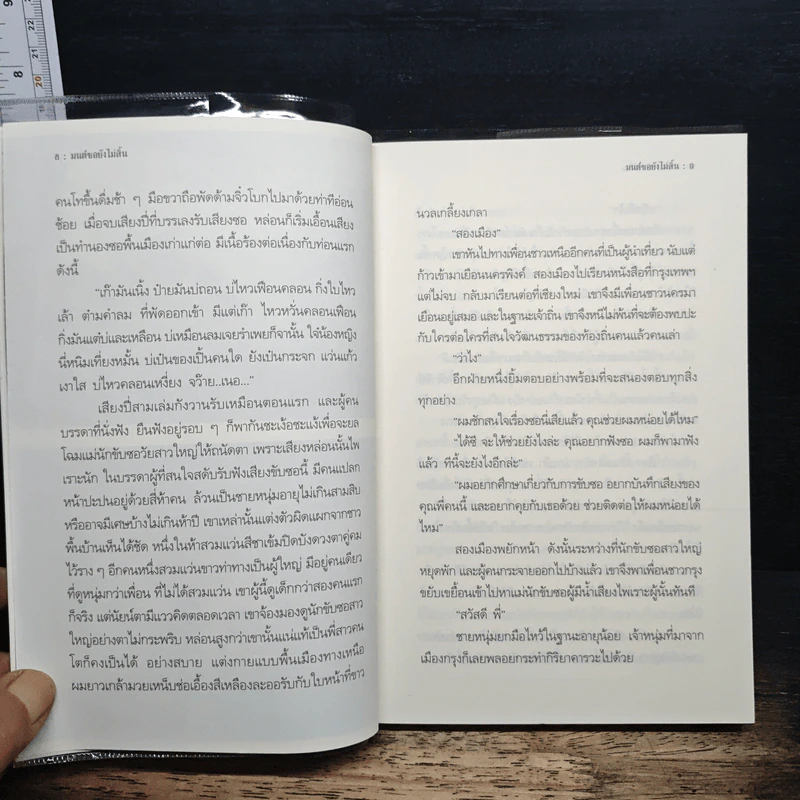 9
8
22
21
20
๘ : มนต์ขอยังไม่สิ้น
คนโทขึ้นดื่มช้า ๆ มือขวาถือพัดด้ามจิ๋วโบกไปมาด้วยท่าทีอ่อน
ช้อย เมื่อจบเสียงปี่ที่บรรเลงรับเสียงซอ หล่อนก็เริ่มเอื้อนเสียง
เป็นทำนองซอพื้นเมืองเก่าแก่ต่อ มีเนื้อร้องต่อเนื่องกับท่อนแรก
ดังนี้
"เก๊ามันเนิ้ง ป๋ายมันบ่ถอน บ่ไหวเฟือนคลอน กิ่งใบไหว
เล้า ต๋ามคำลม ที่พัดออกเข้า มีแต่เก๊า ไหวหวั่นคลอนเฟือน
กิ่งมันแต๋บ่และเหลือน บ่เหมือนลมเจยรำเพยก็จานั้น ใจ๋น้องหญิง
นี่หนิมเที่ยงหมั้น บ่เป๋นของเปิ้นคนใด ยังเป๋นกระจก แว่นแก้ว
เงาใส บ่ไหวคลอนเหงี่ยง จว๊าย..เนอ..."
เสียงปี่สามเล่มกังวานรับเหมือนตอนแรก และผู้คน
บรรดาที่นั่งฟัง ยืนฟังอยู่รอบ ๆ ก็พากันชะเง้อชะแง้เพื่อจะยล
โฉมแม่นักขับซอวัยสาวใหญ่ให้ถนัดตา เพราะเสียงหล่อนนั้นไพ
เราะนัก ในบรรดาผู้ที่สนใจสดับรับฟังเสียงขับซอนี้ มีคนแปลก
หน้าปะปนอยู่ด้วยสี่ห้าคน ล้วนเป็นชายหนุ่มอายุไม่เกินสามสิบ
หรืออาจมีเศษบ้างไม่เกินห้าปี เขาเหล่านั้นแต่งตัวผิดแผกจากชาว
พื้นบ้านเห็นได้ชัด หนึ่งในห้าสวมแว่นสีชาเข้มปิดบังดวงตาคู่คม
ไว้ราง ๆ อีกคนหนึ่งสวมแว่นขาวท่าทางเป็นผู้ใหญ่ มีอยู่คนเดียว
ที่ดูหนุ่มกว่าเพื่อน ที่ไม่ได้สวมแว่น เขาผู้นี้ดูเด็กกว่าสองคนแรก
ก็จริง แต่นัยน์ตามีแววคิดตลอดเวลา เขาจ้องมองดูนักขับซอสาว
ใหญ่อย่างตาไม่กระพริบ หล่อนสูงกว่าเขานั้นแน่แท้เป็นพี่สาวคน
โตก็คงเป็นได้ อย่างสบาย แต่งกายแบบพื้นเมืองทางเหนือ
ผมยาวเกล้ามวยเหน็บช่อเอื้องสีเหลืองละออรับกับใบหน้าที่ขาว
มนต์ขอยังไม่สิ้น : ๙
นวลเกลี้ยงเกลา
"สองเมือง"
เขาหันไปทางเพื่อนชาวเหนืออีกคนที่เป็นผู้นำเที่ยว นับแต่
ก้าวเข้ามาเยือนนครพิงค์ สองเมืองไปเรียนหนังสือที่กรุงเทพฯ
แต่ไม่จบ กลับมาเรียนต่อที่เชียงใหม่ เขาจึงมีเพื่อนชาวนครมา
เยือนอยู่เสมอ และในฐานะเจ้าถิ่น เขาจึงหนีไม่พ้นที่จะต้องพบปะ
กับใครต่อใครที่สนใจวัฒนธรรมของท้องถิ่นคนแล้วคนเล่า
"ว่าไง"
อีกฝ่ายหนึ่งยิ้มตอบอย่างพร้อมที่จะสนองตอบทุกสิ่ง
ทุกอย่าง
"ผมชักสนใจเรื่องซอนี่เสียแล้ว คุณช่วยผมหน่อยได้ไหม"
"ได้ซี จะให้ช่วยยังไงล่ะ คุณอยากฟังซอ ผมก็พามาฟัง
แล้ว ทีนี้จะยังไงอีกล่ะ"
"ผมอยากศึกษาเกี่ยวกับการขับซอ อยากบันทึกเสียงของ
คุณพี่คนนี้ และอยากคุยกับเธอด้วย ช่วยติดต่อให้ผมหน่อยได้
ไหม"
สองเมืองพยักหน้า ดังนั้นระหว่างที่นักขับซอสาวใหญ่
หยุดพัก และผู้คนกระจายออกไปบ้างแล้ว เขาจึงพาเพื่อนชาวกรุง
ขยับเขยื้อนเข้าไปหาแม่นักขับซอผู้มีน้ำเสียงไพเราะผู้นั้นทันที
"สวัสดี พี่"
ชายหนุ่มยกมือไหว้ในฐานะอายุน้อย เจ้าหนุ่มที่มาจาก
เมืองกรุงก็เลยพลอยกระทำกิริยาคารวะไปด้วย